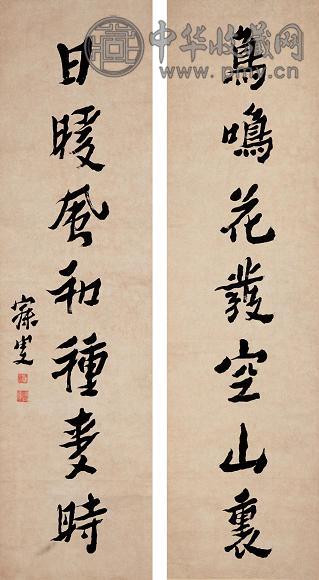 中华收藏网
鳥鳴花發空山裏
日暖風和種麥時
寐叟